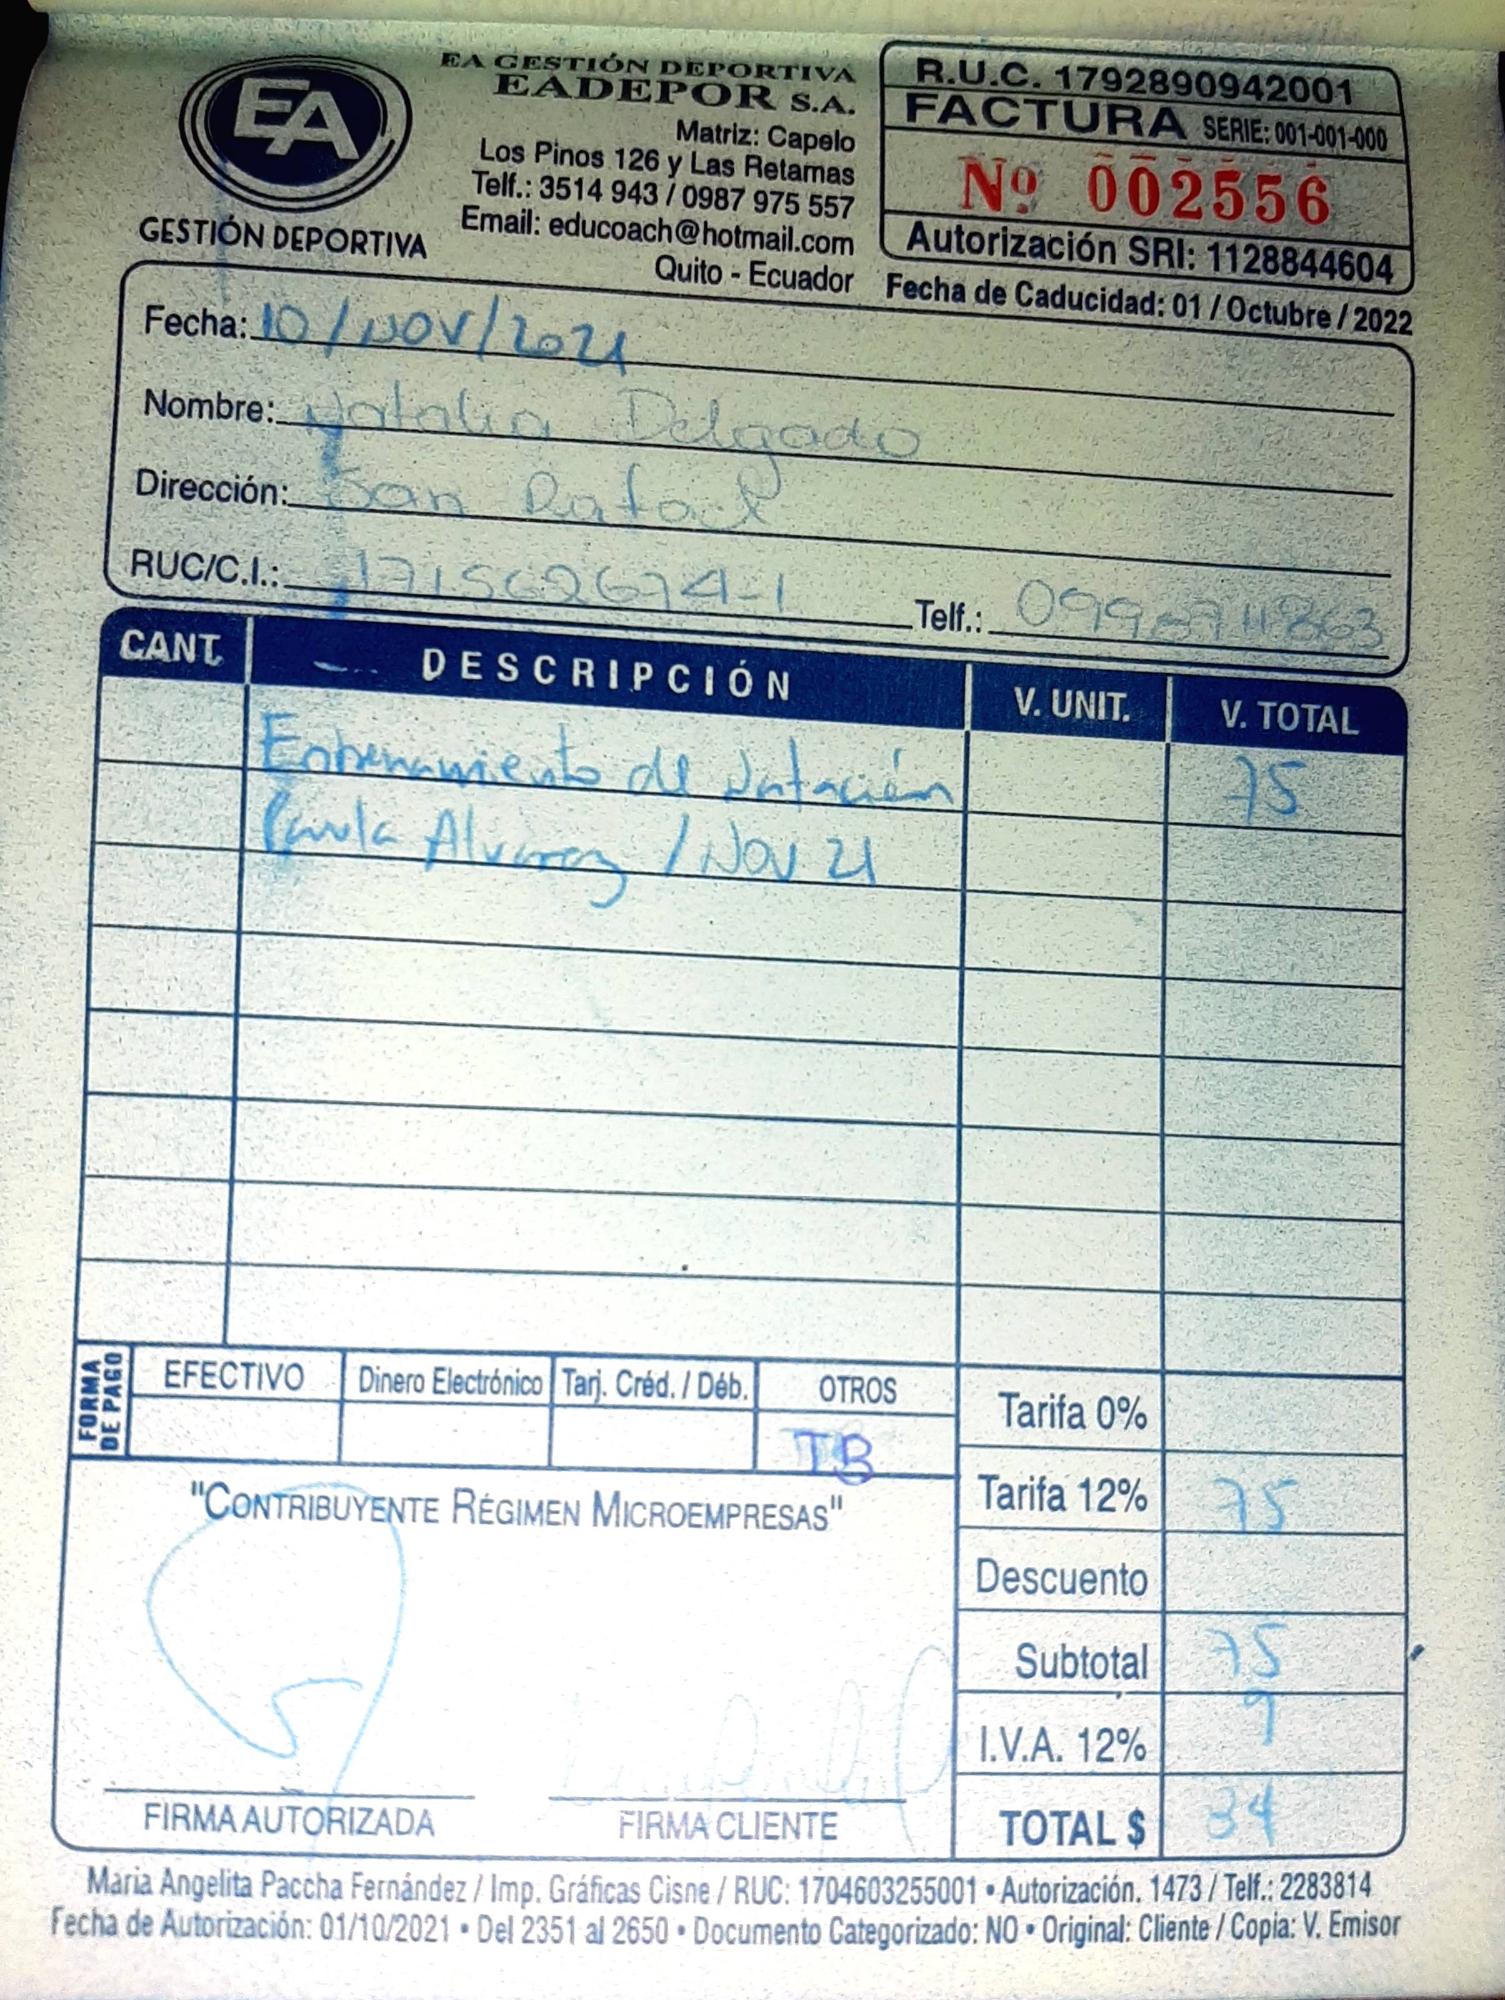 EA
GESTIÓN DEPORTIVA
EA GESTIÓN DEPORTIVA
EADEPOR S.A.
Matriz: Capelo
Los Pinos 126 y Las Retamas
Telf.: 3514 943 / 0987 975 557
Email: educoach@hotmail.com
Quito - Ecuador
R.U.C. 1792890942001
FACTURA SERIE: 001-001-000
Nº 002556
Autorización SRI: 1128844604
Fecha de Caducidad: 01 / Octubre / 2022
Fecha: 10/NOV/2021
Nombre: Natalia Delgado
Dirección: San Rafael
RUC/C.I.: 171562674-1 Telf.:
CANT. DESCRIPCIÓN V. UNIT. V. TOTAL
Entrenamiento de Natación 75
Paula Alvarez / Nov 21
FORMA DE PAGO
EFECTIVO Dinero Electrónico Tarj. Créd. / Déb. OTROS
TB
Tarifa 0%
Tarifa 12% 75
Descuento
Subtotal 75
I.V.A. 12% 9
TOTAL $ 84
"CONTRIBUYENTE RÉGIMEN MICROEMPRESAS"
FIRMA AUTORIZADA FIRMA CLIENTE
Maria Angelita Paccha Fernández / Imp. Gráficas Cisne / RUC: 1704603255001 • Autorización. 1473 / Telf.: 2283814
Fecha de Autorización: 01/10/2021 • Del 2351 al 2650 • Documento Categorizado: NO • Original: Cliente / Copia: V. Emisor